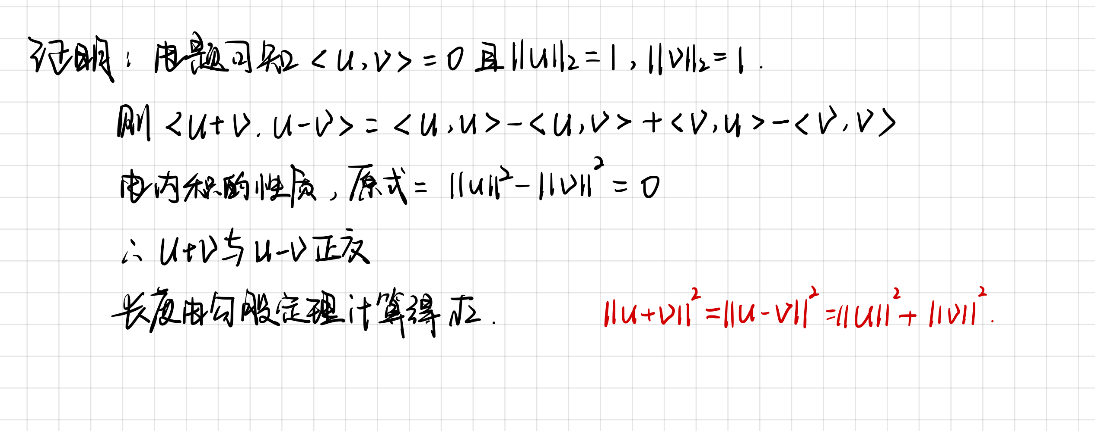 证明：由题可知 <u,v> = 0 且 ||u||₂ = 1 , ||v||₂ = 1 .
则 <u+v, u-v> = <u,u> - <u,v> + <v,u> - <v,v>
由内积的性质，原式 = ||u||² - ||v||² = 0
∴ u+v 与 u-v 正交
长度由勾股定理计算得 √2 . ||u+v||² = ||u-v||² = ||u||² + ||v||² .